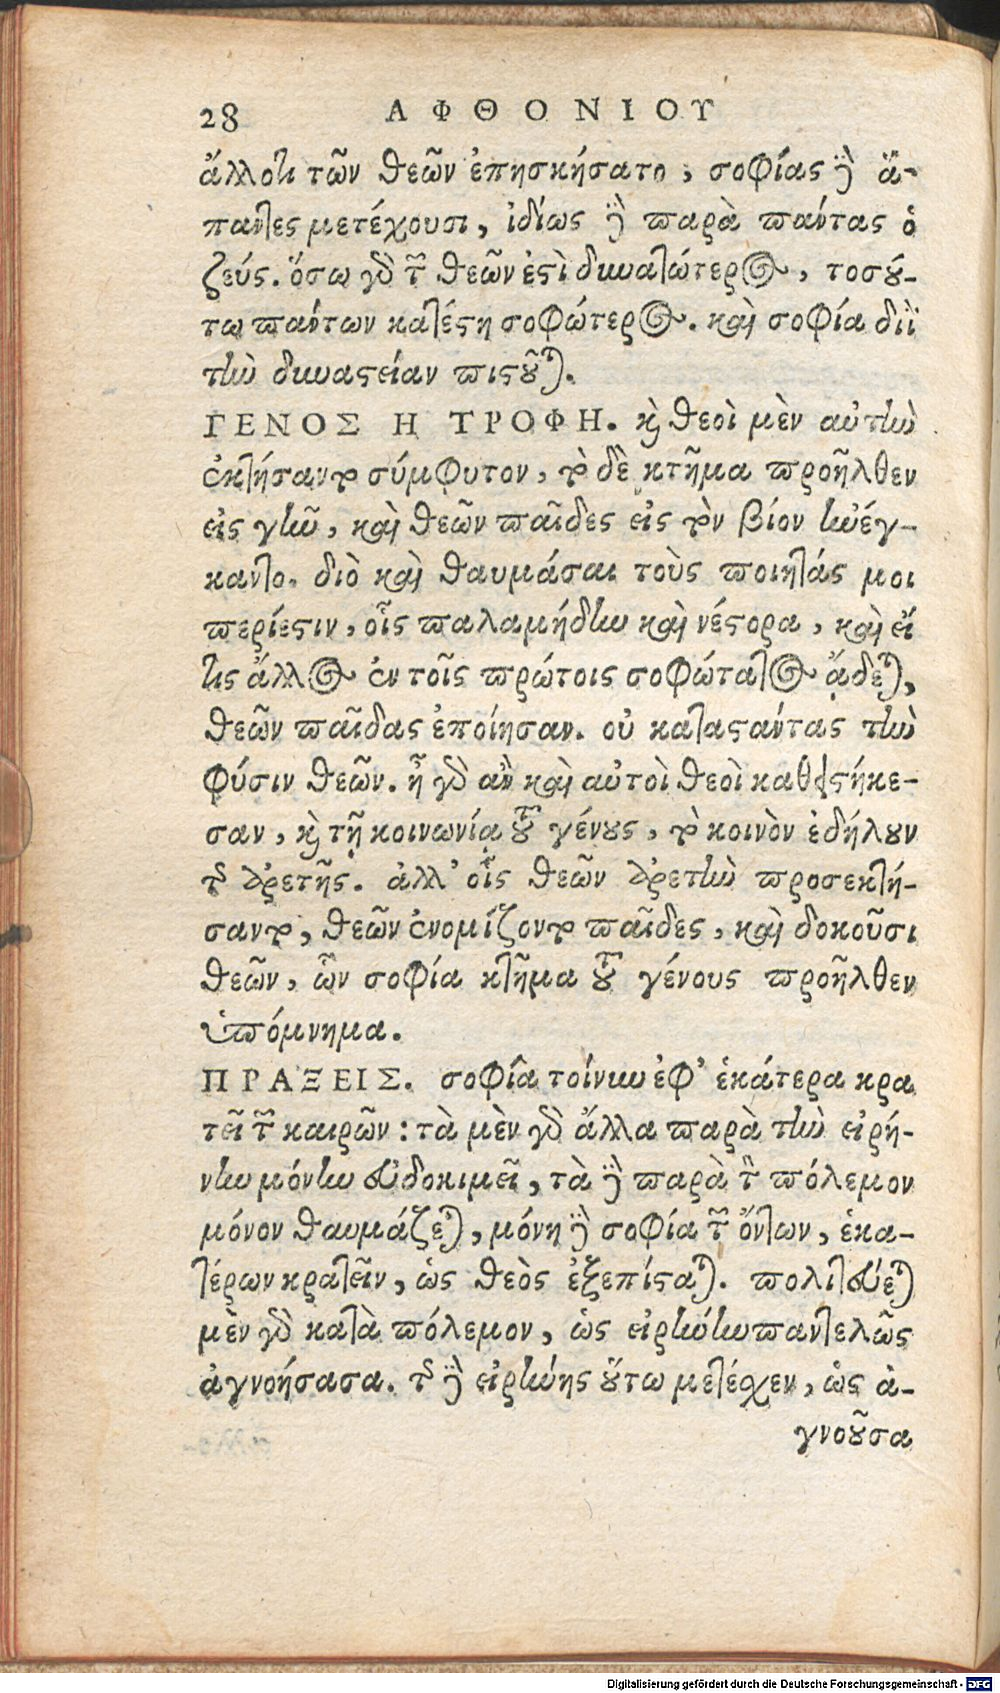 28 ΑΦΘΟΝΙΟΥ
ἄλλοτι τῶν θεῶν ἐπησκήσατο, σοφίας δὲ ἅ-
παντες μετέχουσι, ἰδίως δὲ παρὰ πάντας ὁ
ζεύς. ὅσω γὰρ τῶν θεῶν ἐστὶ δυνατώτερος, τοσού-
τω πάντων κατέστη σοφώτερος. καὶ σοφία διῒ
τὴν δυναστείαν πιστοῦται.
ΓΕΝΟΣ Η ΤΡΟΦΗ. καὶ θεοὶ μὲν αὐτὴν
ἐκτήσαντο σύμφυτον, τὸ δὲ κτῆμα προῆλθεν
εἰς γῆν, καὶ θεῶν παῖδες εἰς τὸν βίον ἠνέγ-
καντο. διὸ καὶ θαυμάσαι τοὺς ποιητάς μοι
περίεστιν, οἷς παλαμήδην καὶ νέστορα, καὶ εἴ
τις ἄλλος ἐν τοῖς πρώτοις σοφώτατος ᾄδεται,
θεῶν παῖδας ἐποίησαν. οὐ καταστάντας τὴν
φύσιν θεῶν. ἦ γὰρ ἂν καὶ αὐτοὶ θεοὶ καθεστήκε-
σαν, καὶ τῇ κοινωνίᾳ τοῦ γένους, τὸ κοινὸν ἐδήλουν
τῆς ἀρετῆς. ἀλλ' οἷς θεῶν ἀρετὴν προσεκτή-
σαντο, θεῶν ἐνομίζοντο παῖδες, καὶ δοκοῦσι
θεῶν, ὧν σοφία κτῆμα τοῦ γένους προῆλθεν
ὑπόμνημα.
ΠΡΑΞΕΙΣ. σοφία τοίνυν ἐφ' ἑκάτερα κρα
τεῖ τῶν καιρῶν: τὰ μὲν γὰρ ἄλλα παρὰ τὴν εἰρή-
νην μόνην εὐδοκιμεῖ, τὰ δὲ παρὰ τὸν πόλεμον
μόνον θαυμάζεται, μόνη δὲ σοφία τῶν ὄντων, ἑκα-
τέρων κρατεῖν, ὡς θεὸς ἐξεπίσταται. πολιτεύεται
μὲν γὰρ κατὰ πόλεμον, ὡς εἰρήνην παντελῶς
ἀγνοήσασα. τῆς δὲ εἰρήνης οὕτω μετέσχεν, ὡς ἀ-
γνοοῦσα
Digitalisierung gefördert durch die Deutsche Forschungsgemeinschaft - DFG